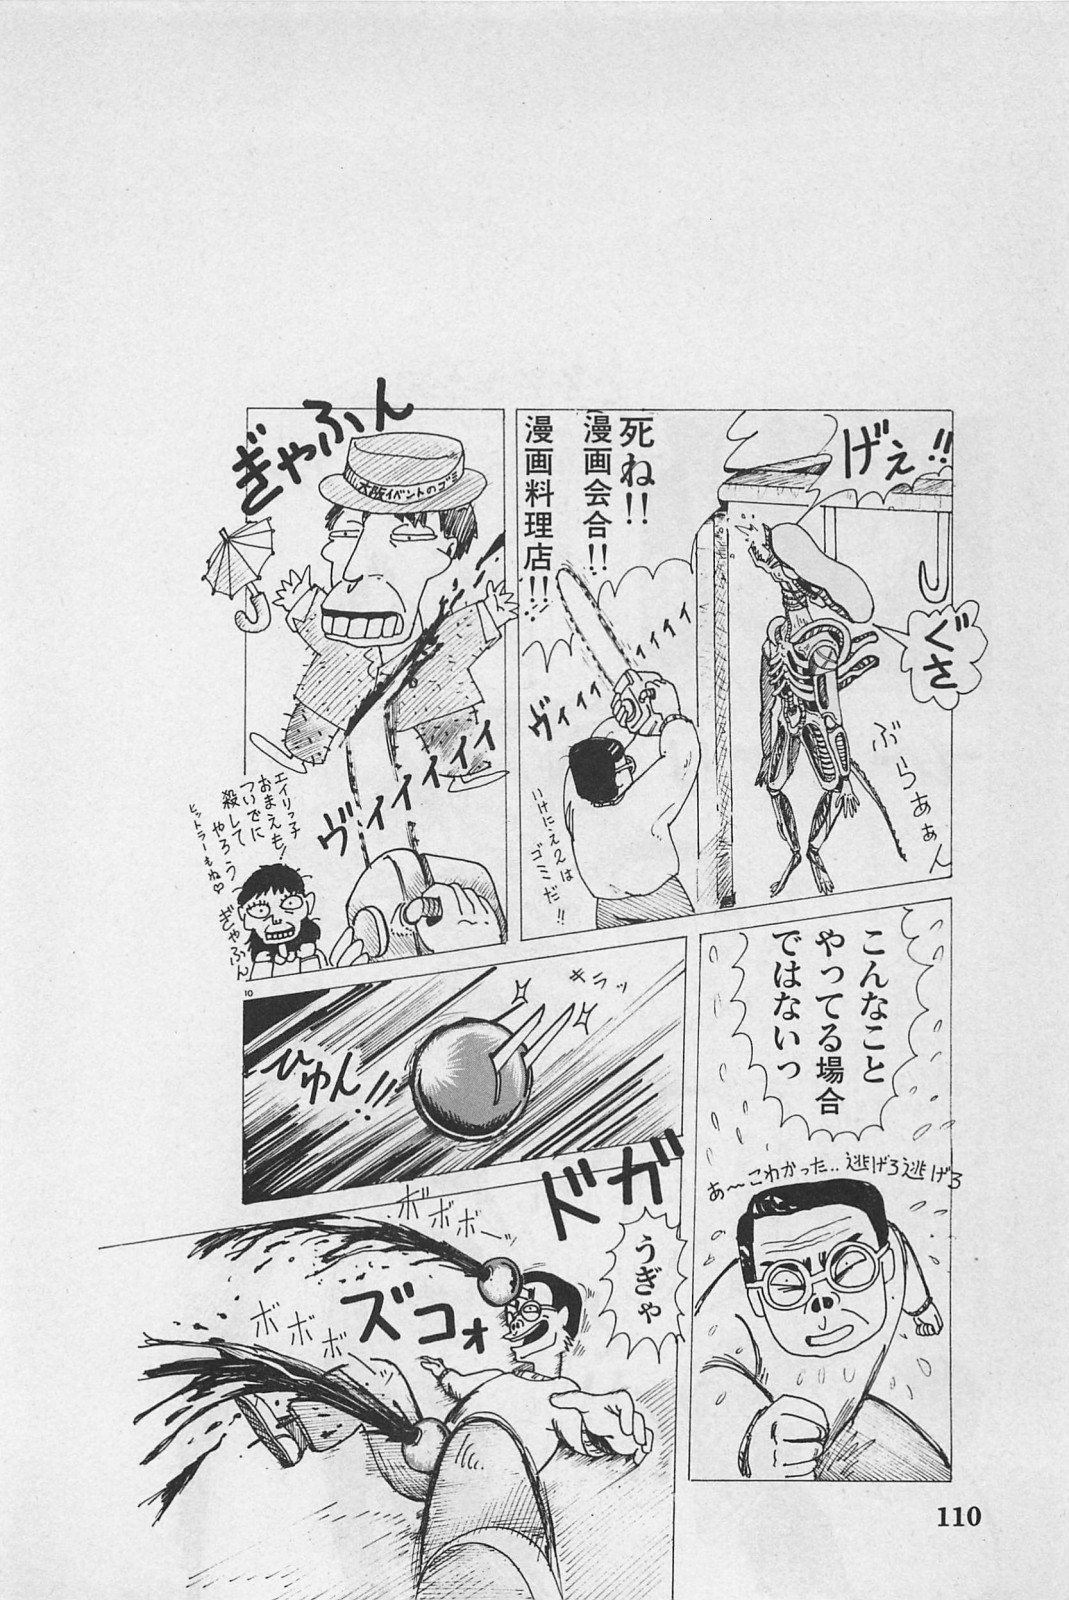 げぇ!!
ぐさ
ぶらぁぁん
死ね!!
漫画会合!!
漫画料理店!!
ヴィィィ
ィィィィ
いけにえ2は
ゴミだ!!
ぎゃふん
大阪イベントのゴミ
ヴィィィィィィ
エイリっ子
おまえも!
ついでに
殺して
やろう
ヒットラーもね♡
ぎゃふん
こんなこと
やってる場合
ではないっ
あ〜こわかった..逃げろ逃げろ
10
キラッ
ひゅん!!
ドガ
ボボボーッ
うぎゃ
ズコォ
ボボボ
110